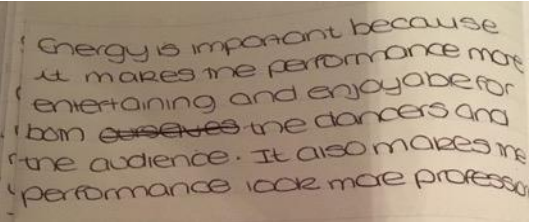 Energy is important because
it makes the performance more
entertaining and enjoyable for
both ourselves the dancers and
the audience. It also makes the
performance look more professio